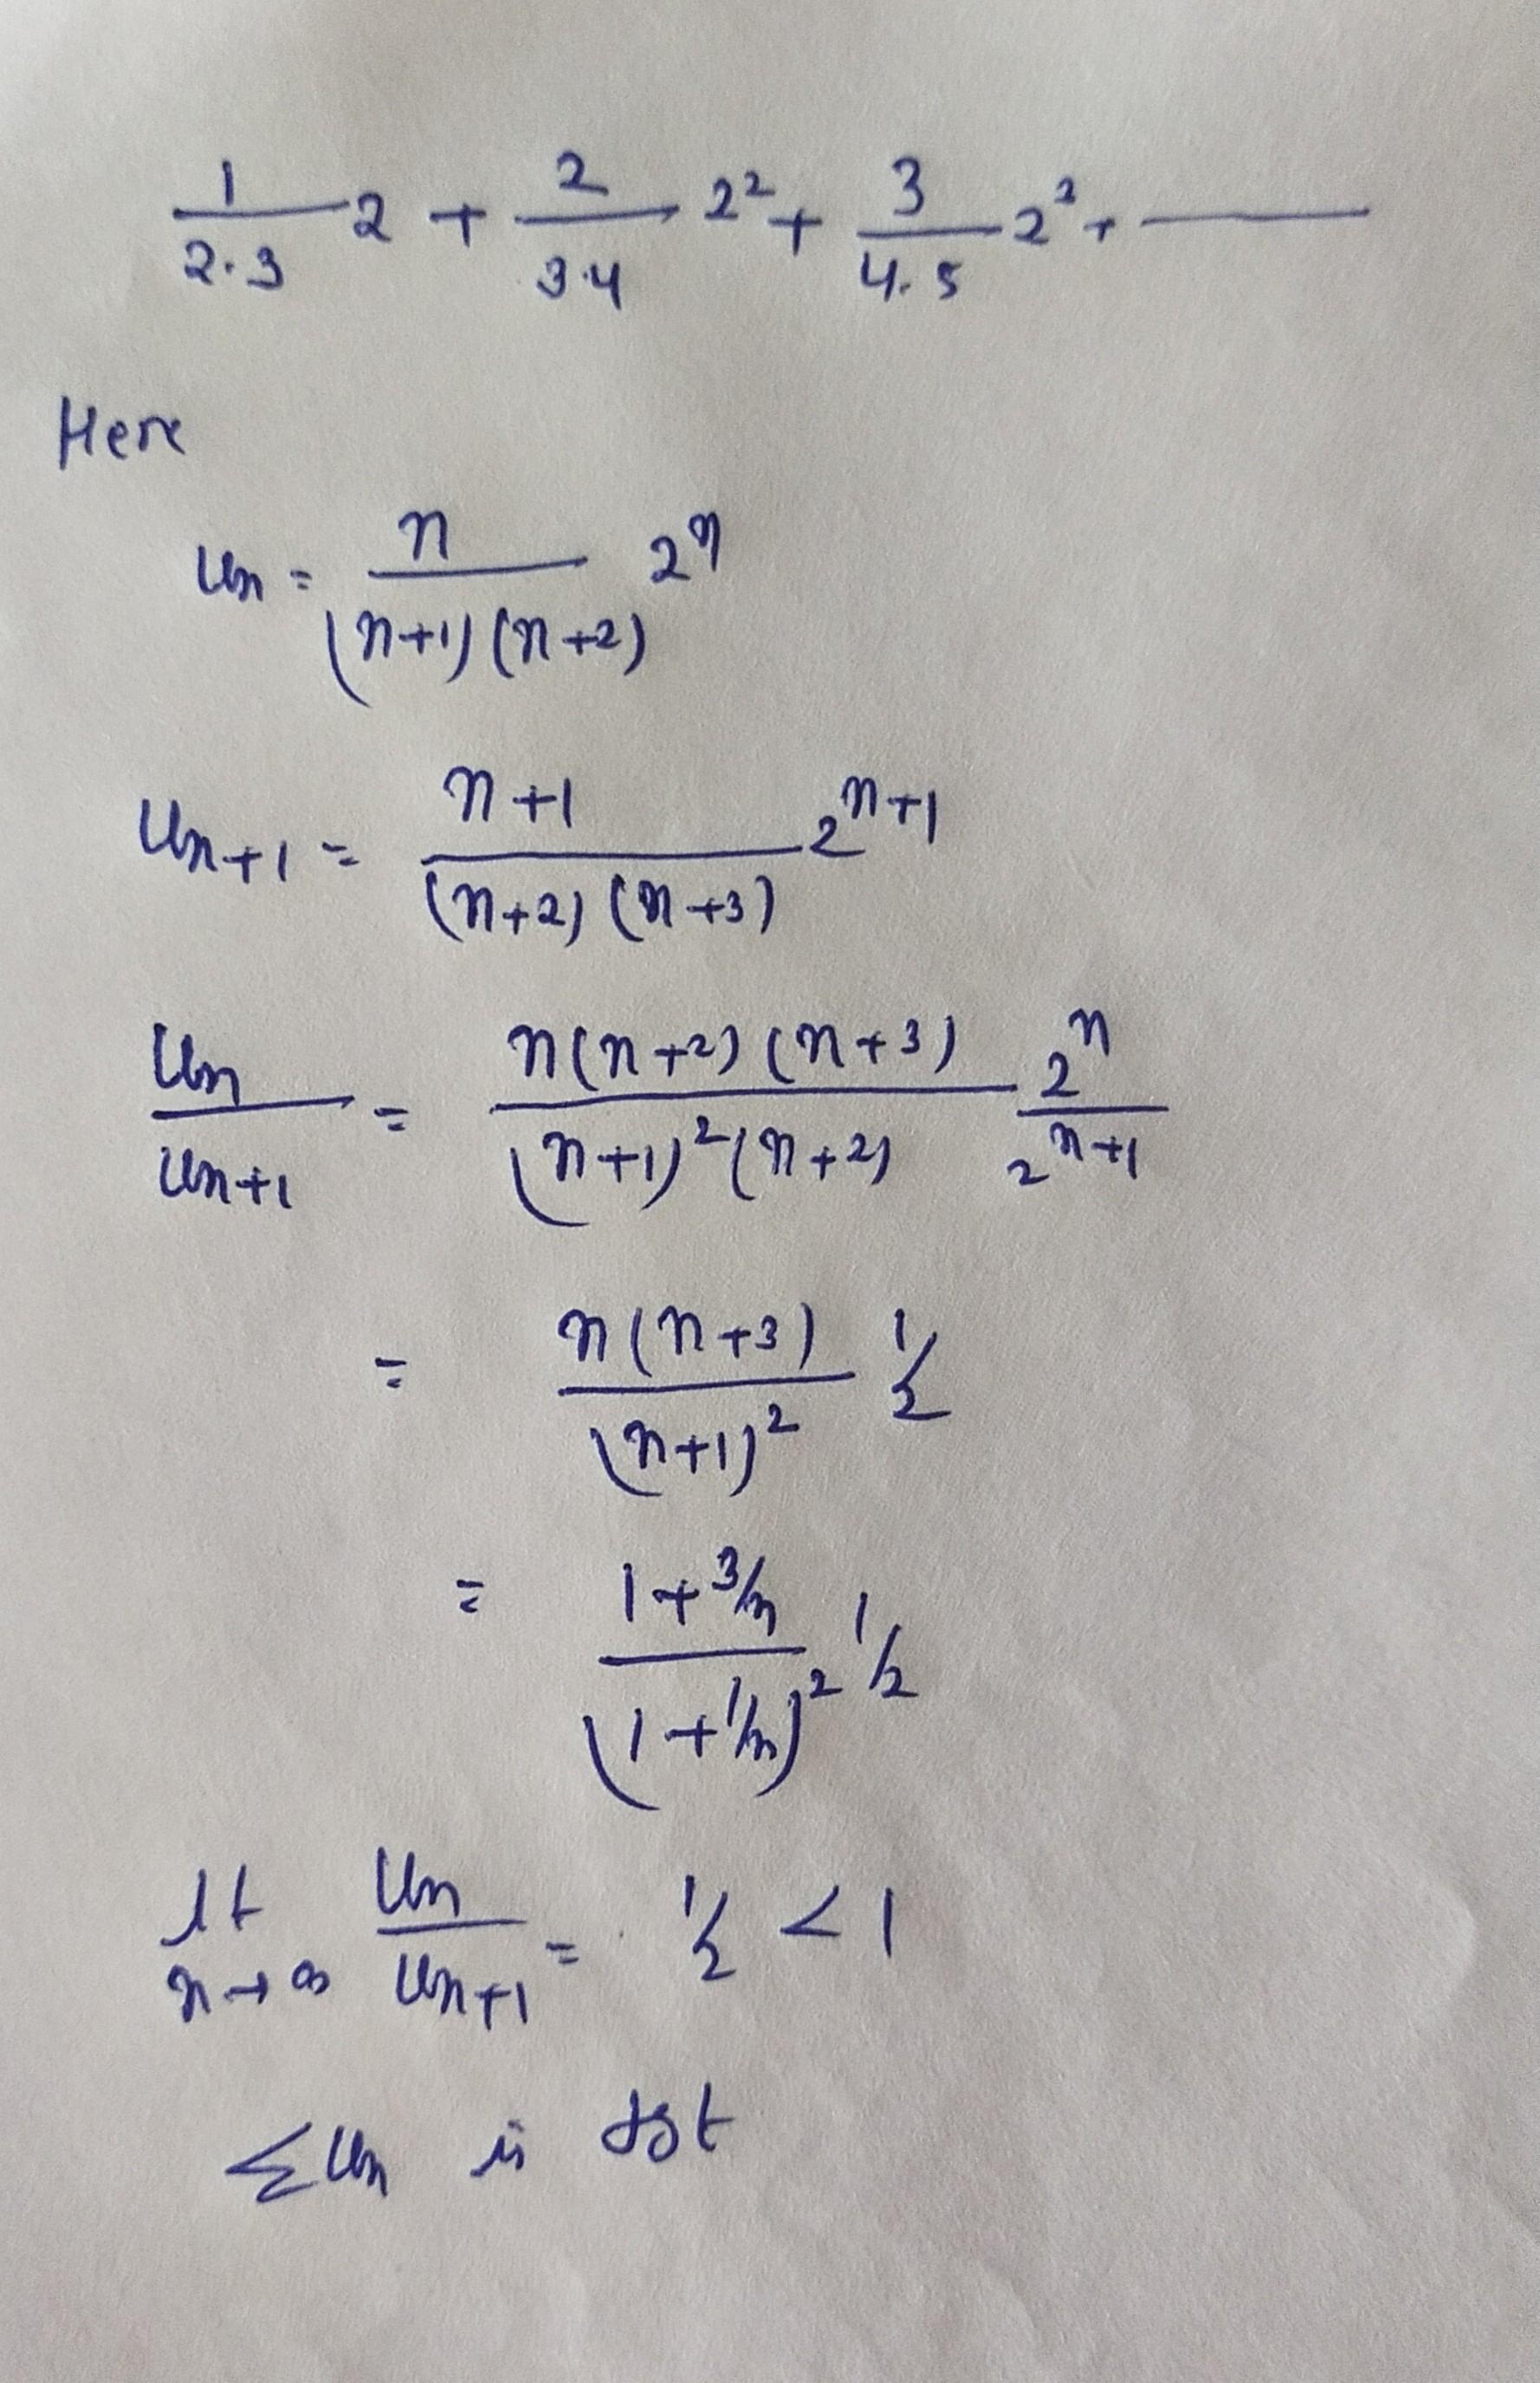 1/2·3 2 + 2/3·4 2² + 3/4·5 2³ + ———
Here
Un = n/(n+1)(n+2) 2ⁿ
Un+1 = n+1/(n+2)(n+3) 2ⁿ⁺¹
Un/Un+1 = n(n+2)(n+3)/(n+1)²(n+2) 2ⁿ/2ⁿ⁺¹
= n(n+3)/(n+1)² 1/2
= 1+3/n/(1+1/n)² 1/2
lt n→∞ Un/Un+1 = 1/2 < 1
ΣUn is